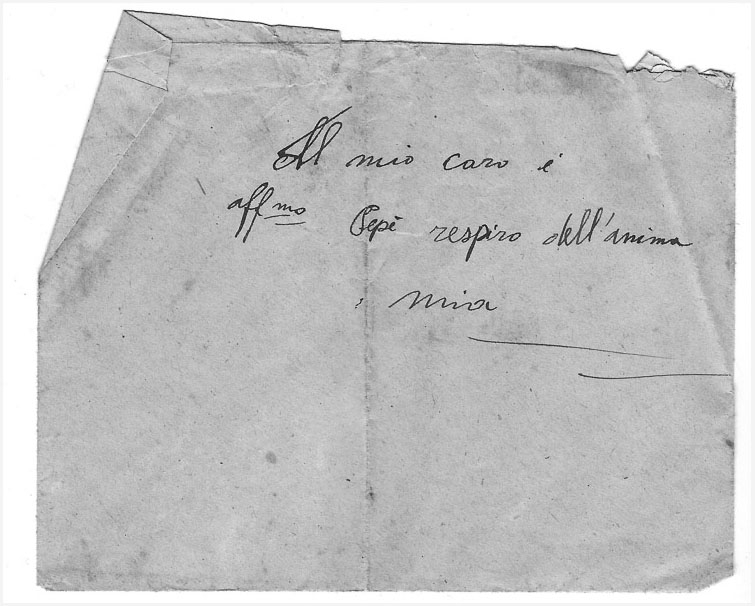 Al mio caro è
affmo Pepè respiro dell'anima
mia